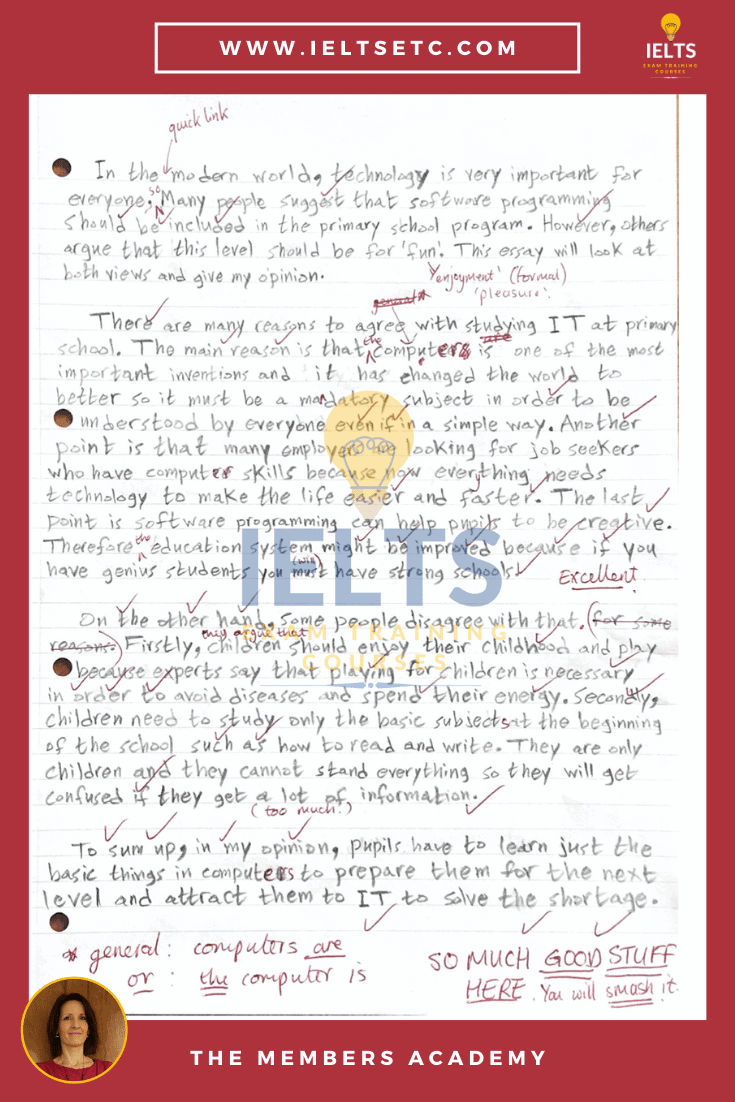 WWW.IELTSETC.COM
IELTS
EXAM TRAINING
COURSES
quick link
In the modern world, technology is very important for
so
everyone. Many people suggest that software programming
should be included in the primary school program. However, others
argue that this level should be for 'fun'. This essay will look at
both views and give my opinion.
'enjoyment' (formal)
'pleasure'.
general*
There are many reasons to agree with studying IT at primary
the are
school. The main reason is that computers is one of the most
important inventions and it has changed the world to
better so it must be a mandatory subject in order to be
understood by everyone even if in a simple way. Another
point is that many employers are looking for job seekers
who have computer skills because now everything needs
technology to make the life easier and faster. The last
point is software programming can help pupils to be creative.
the
Therefore education system might be improved because if you
(will)
have genius students you must have strong schools.
Excellent.
IELTS
EXAM TRAINING
COURSES
On the other hand, some people disagree with that. (for some
they argue that
reasons.) Firstly, children should enjoy their childhood and play
because experts say that playing for children is necessary
in order to avoid diseases and spend their energy. Secondly,
children need to study only the basic subjects at the beginning
of the school such as how to read and write. They are only
children and they cannot stand everything so they will get
confused if they get a lot of information.
(too much!)
To sum up, in my opinion, pupils have to learn just the
basic things in computers to prepare them for the next
level and attract them to IT to solve the shortage.
* general: computers are
or: the computer is
SO MUCH GOOD STUFF
HERE. You will smash it.
THE MEMBERS ACADEMY